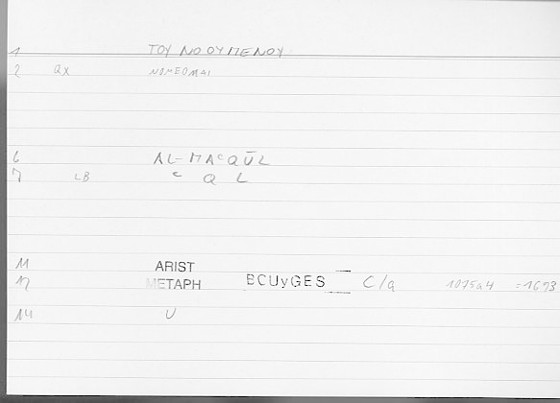 1 ΤΟΥ ΝΟΟΥΜΕΝΟΥ
2 ax ΝΟΗΕΟΜΑΙ
6 AL-MAᶜQŪL
7 LB ᶜ Q L
11 ARIST
12 METAPH BCUyGES C/a 1075a4 =1693
14 U